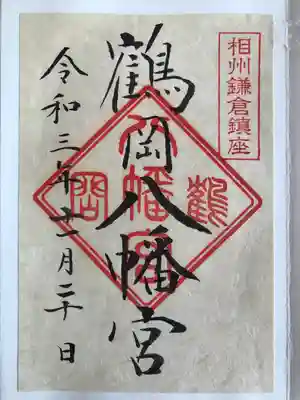 相州鎌倉鎮座
鶴岡八幡宮
令和三年十二月二十日
鶴
岡
八幡宮